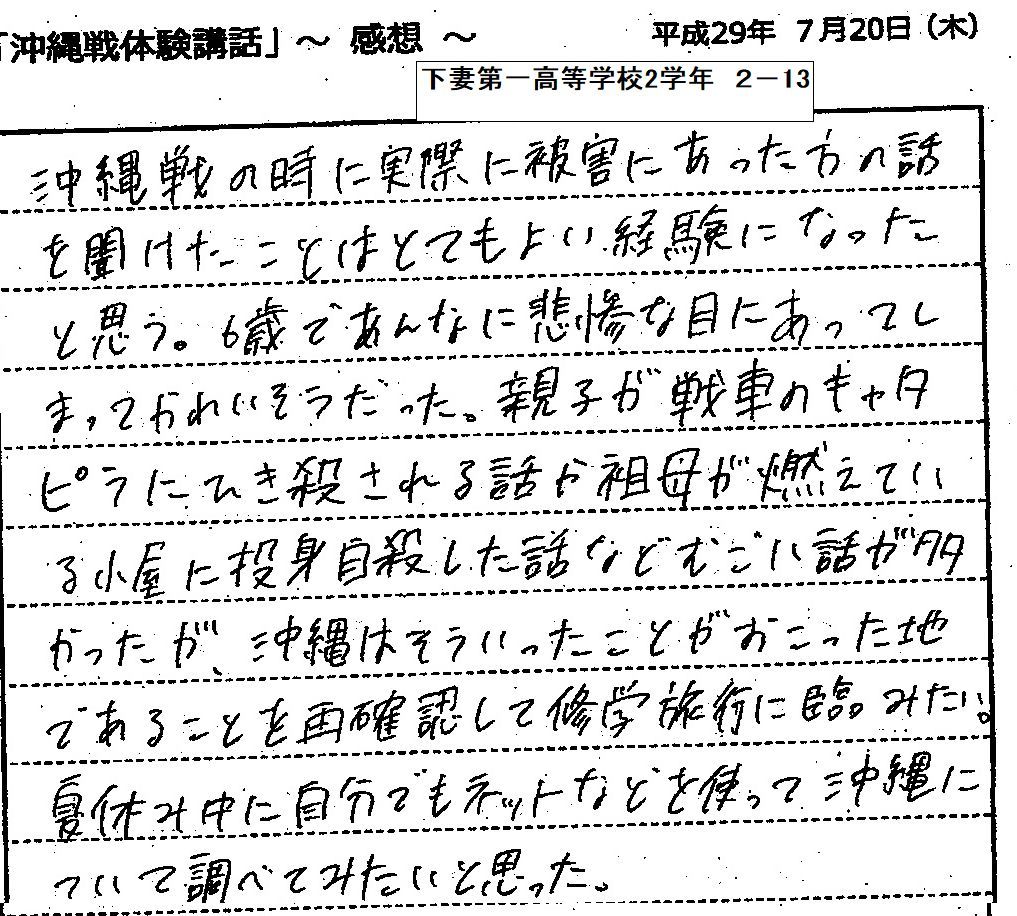 「沖縄戦体験講話」～ 感想 ～ 平成29年 7月20日（木）
下妻第一高等学校2学年 2－13
沖縄戦の時に実際に被害にあった方の話
を聞けたことはとてもよい経験になった
と思う。6歳であんなに悲惨な目にあってし
まってかわいそうだった。親子が戦車のキャタ
ピラにひき殺される話や祖母が燃えてい
る小屋に投身自殺した話などむごい話が多
かったが、沖縄はそういったことがおこった地
であることを再確認して修学旅行に臨みたい。
夏休み中に自分でもネットなどを使って沖縄に
ついて調べてみたいと思った。